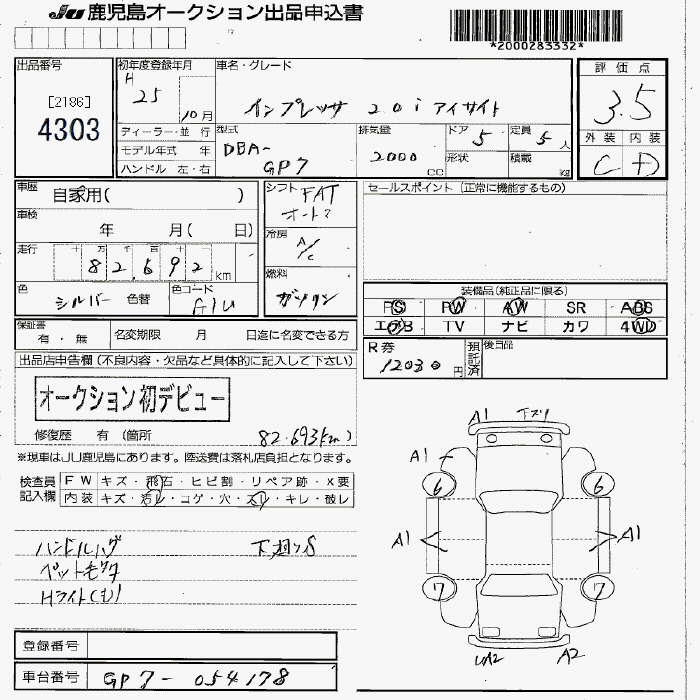 JU 鹿児島オークション出品申込書
*2000283332*
出品番号
[2186]
4303
初年度登録年月
H
25
10月
ディーラー・並 行
モデル年式 年
ハンドル 左・右
車名・グレード
インプレッサ 2.0i アイサイト
型式
DBA-
GP7
排気量
2000 cc
ドア 5
形状
定員 5 人
積載 kg
評価点
3.5
外装 内装
C D
車歴
自家用( )
車検
年 月( 日)
走行
十 万 千 百 十 一
82,692 km
色
シルバー 色替
色コード
G1U
シフト FAT
オートマ
冷房 A/C
燃料
ガソリン
セールスポイント (正常に機能するもの)
装備品(純正品に限る)
PS PW AW SR ABS
エアB TV ナビ カワ 4WD
保証書
有・無
名変期限 月 日迄に名変できる方
R券
12030 円
預託済
後日品
出品店申告欄(不良内容・欠品など具体的に記入して下さい)
オークション初デビュー
修復歴 有 (箇所
82.693km)
※現車はJU鹿児島にあります。陸送費は落札店負担となります。
検査員
記入欄
FW キズ・飛石・ヒビ割・リペア跡・X要
内装 キズ・汚レ・コゲ・穴・スレ・キレ・破レ
下廻りS
Hライト
A1 下ズリ
A1
6 6
A1 A1
7 7
A2
登録番号
車台番号
GP7-054178